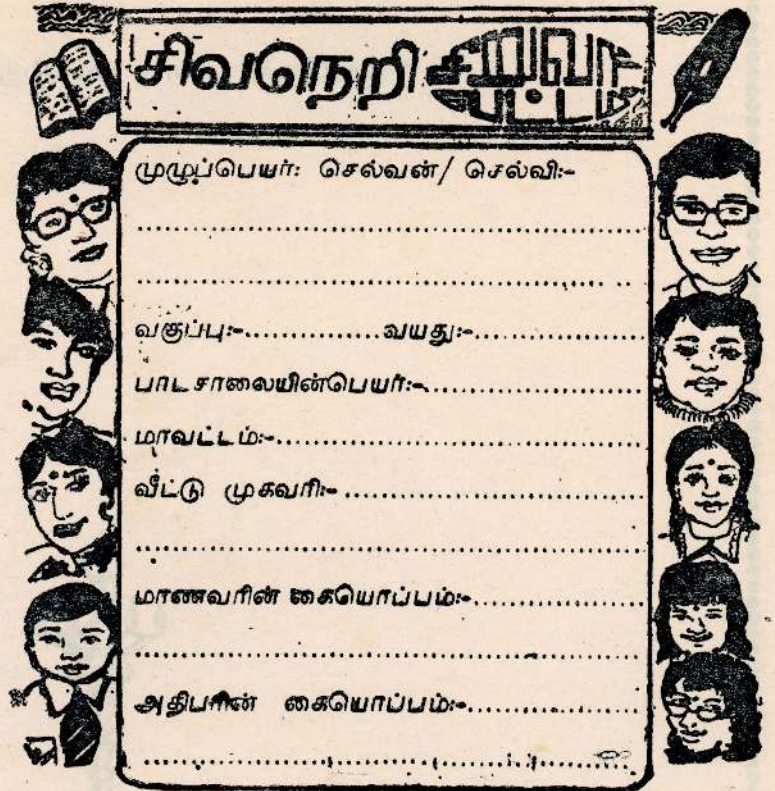 சிவநெறி சிறுவர்
வட்டம்
முழுப்பெயர்: செல்வன்/ செல்வி:-
..............................................................
..............................................................
வகுப்பு:-................வயது:-....................
பாடசாலையின்பெயர்:-..........................
மாவட்டம்:-............................................
வீட்டு முகவரி:- ....................................
..............................................................
மாணவரின் கையொப்பம்:-....................
..............................................................
அதிபரின் கையொப்பம்:-.....................
..............................................................